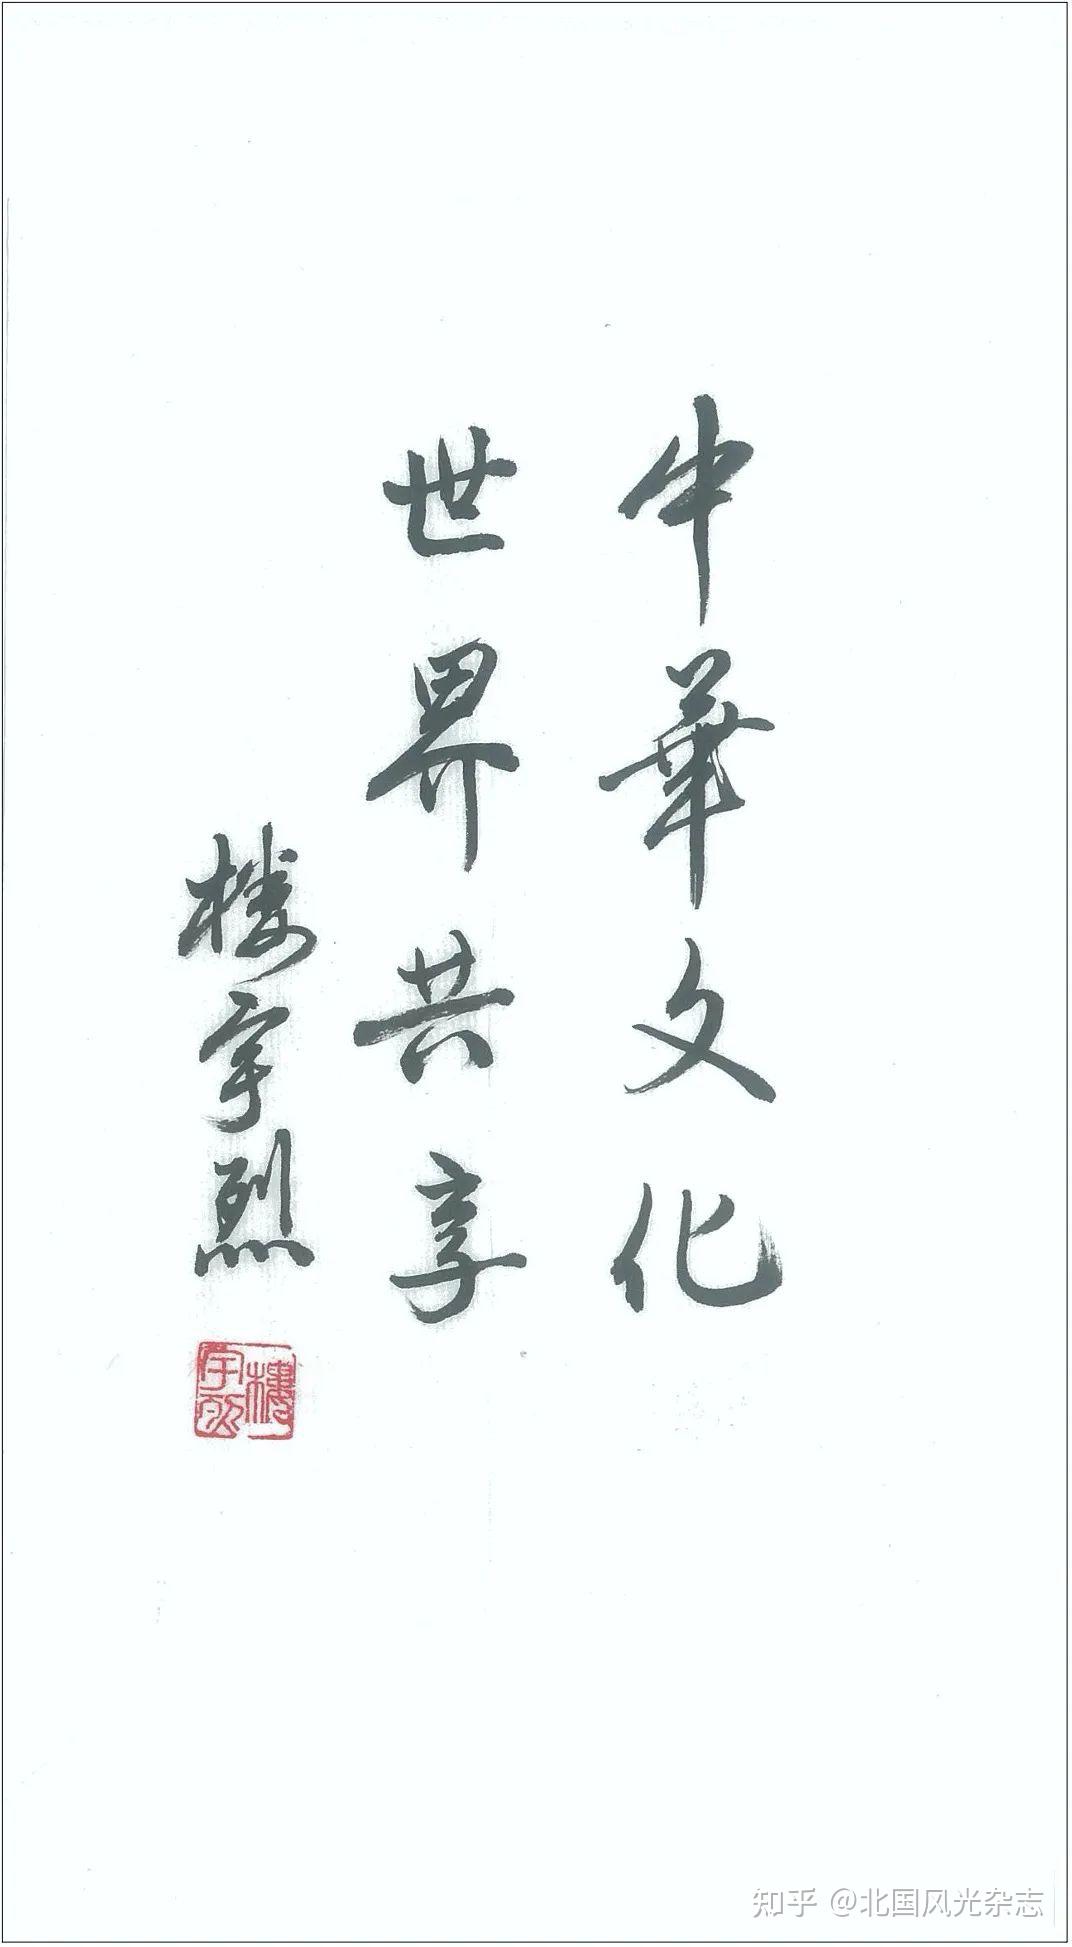 中華文化
世界共享
楼宇烈
樓宇烈
知乎 @北国风光杂志